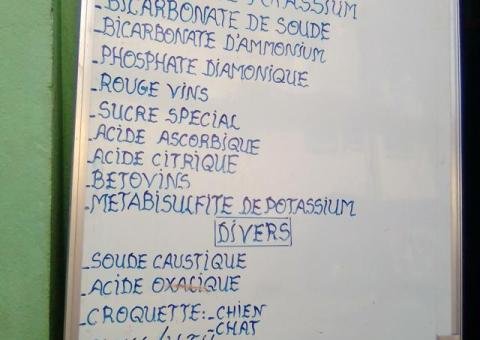 POTASSIUM
-BICARBONATE DE SOUDE
-BICARBONATE D'AMMONIUM
-PHOSPHATE DIAMONIQUE
-ROUGE VINS
-SUCRE SPECIAL
-ACIDE ASCORBIQUE
-ACIDE CITRIQUE
-BETOVINS
-METABISULFITE DE POTASSIUM
DIVERS
-SOUDE CAUSTIQUE
-ACIDE OXALIQUE
-CROQUETTE:-CHIEN
-CHAT